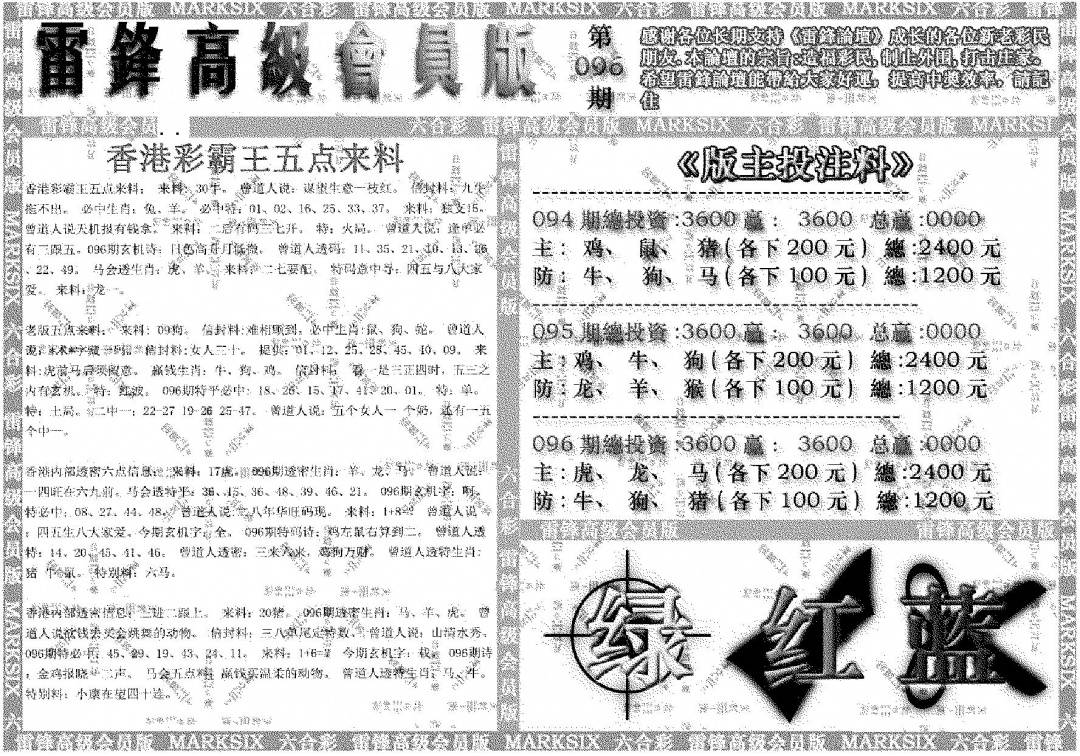 雷锋高级会员版 MARKSIX 六合彩
雷鋒高級會員版
第
096
期
感谢各位长期支持《雷鋒論壇》成长的各位新老彩民
朋友.本論壇的宗旨:造福彩民,制止外围,打击庄家.
希望雷鋒論壇能帶給大家好運，提高中獎效率，請記
住
雷锋高级会员 六合彩 雷锋高级会员版 MARKSIX 六合彩 雷锋高级会员版 MARKSI
香港彩霸王五点来料
香港彩霸王五点来料： 来料：30牛。 曾道人说：谋望生意一枝红。 信封料：九牛
拖不出。 必中生肖：兔、羊。 必中特：01、02、16、25、33、37。 来料：独支15。
曾道人说天机报有钱拿。 来料：二尾有码三七开。 特：火局。 曾道人说：逢单必
有三跟五。096期玄机诗：日色高在月低微。 曾道人透码：11、35、21、10、13、26
、22、49。 马会透生肖：虎、羊。 来料：二七要配。 特码意中寻：四五与八大家
爱。 来料：龙一。
老版五点来料： 来料：09狗。 信封料:难相顾到。必中生肖:鼠、狗、蛇。 曾道人
信封料:女人三十。 提供：01、12、25、28、45、40、09。 来
料:虎前马后须留意。 赢钱生肖：牛、狗、鸡。 信封料： 看一是三正四时，五三之
内有玄机。 特：红波。 096期特平必中：18、26、15、17、41、20、01。 特：单。
特：土局。 二中一：22-27 19-26 25-47。 曾道人说：五个女人一个奶，还有一五
个中一。
香港内部透密六点信息： 来料：17虎。 096期透密生肖：羊、龙、马。 曾道人说：
一四旺在六九前。马会透特平：36、15、36、48、39、46、21。 096期玄机字：啊。
特必中：08、27、44、48。 曾道人说：二八年华旺码现。 来料：1+8=? 曾道人说
：四五生八大家爱。今期玄机字：全。 096期特码诗：鸡左鼠右算到二。 曾道人透
特：14、20、45、41、46。 曾道人透密：三来六来，鸡狗万财。 曾道人透特生肖：
猪 牛 鼠。 特别料：六马。
香港内部透密信息：三进二跟上。 来料：20猪。 096期透密生肖：马、羊、虎。 曾
道人说欲钱去买会跳舞的动物。 信封料：三八单尾定特数。 曾道人说：山清水秀。
096期特必中：45、29、19、43、24、11。 来料：1+6=? 今期玄机字：载。 096期诗
：金鸡报晓一二声。 马会五点料：赢钱买温柔的动物。 曾道人透特生肖：马、牛。
特别料：小康在望四十连。
《版主投注料》
094 期總投资:3600 赢： 3600 总赢:0000
主：鸡、 鼠、 猪(各下 200 元) 總:2400 元
防：牛、 狗、 马(各下 100 元) 總:1200 元
095 期總投资:3600 赢： 3600 总赢:0000
主：鸡、 牛、 狗(各下 200 元) 總:2400 元
防：龙、 羊、 猴(各下 100 元) 總:1200 元
096 期總投资:3600 赢： 3600 总赢:0000
主：虎、 龙、 马(各下 200 元) 總:2400 元
防：牛、 狗、 猪(各下 100 元) 總:1200 元
雷锋高级会员版 雷锋高级会员版
绿 红 蓝
雷锋高级会员版 MARKSIX 六合彩 雷锋高级会员版 MARKSIX 六合彩 雷锋高级会员版 MARKSIX 六合彩